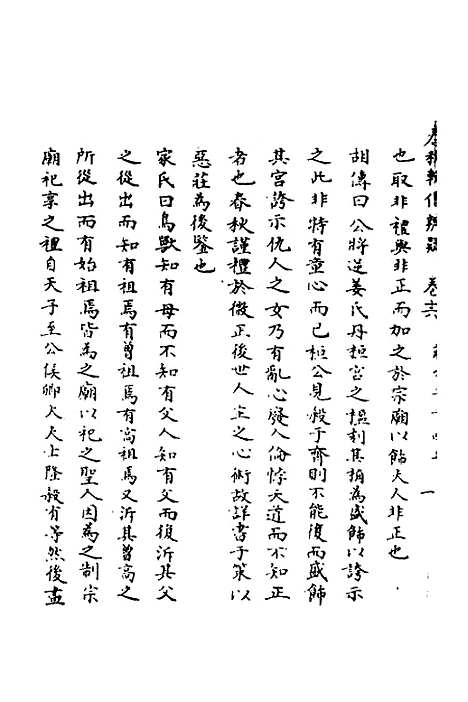 春秋輯傳辨疑　卷十六
也取非禮與非正而加之於宗廟以飾夫人非正也
胡傳曰公將逆姜氏丹桓宮之楹刻其桷為盛飾以誇示
之此非特有童心而已桓公見殺于齊則不能復而盛飾
其宮誇示仇人之女乃有亂心廢人倫悖天道而不知正
者也春秋謹禮於微正後世人主之心術故詳書于策以
惡莊為後鑒也
家氏曰鳥獸知有母而不知有父人知有父而復泝其父
之從出而知有祖焉有曾祖焉有高祖焉又泝其曾高之
所從出而有始祖焉皆為之廟以祀之聖人因為之制宗
廟祀享之禮自天子至公侯卿大夫士隆殺有等然後盡